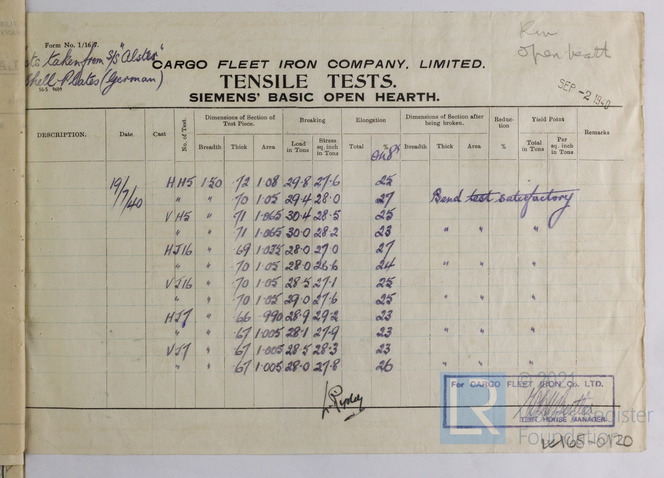 Rim
open hearth
Form No. 1/16/8.
taken from S/S "Alster"
Shell Plates (German)
CARGO FLEET IRON COMPANY, LIMITED.
TENSILE TESTS.
SIEMENS' BASIC OPEN HEARTH.
SEP -2 1940
DESCRIPTION. Date Cast No. of Test. Dimensions of Section of Test Piece. Breaking Elongation Dimensions of Section after being broken. Reduction % Yield Point Remarks
Breadth Thick Area Load in Tons Stress sq. inch in Tons Total % Breadth Thick Area Total in Tons Per sq. in Tons
on 8"
19/7/40 H H5 1·50 ·72 1·08 29·8 27·6 25
" " ·70 1·05 29·4 28·0 27 Bend test satisfactory
V H5 " ·71 1·065 30·4 28·5 25
" " ·71 1·065 30·0 28·2 23 " " "
H J16 " ·69 1·035 28·0 27·0 27
" " ·70 1·05 28·0 26·6 24 " " "
V J16 " ·70 1·05 28·5 27·1 25
" " ·70 1·05 29·0 27·6 25 " " "
H J7 " ·66 ·990 28·9 29·2 23
" " ·67 1·005 28·1 27·9 23 " " "
V J7 " ·67 1·005 28·5 28·3 23
" " ·67 1·005 28·0 27·8 26 " " "
For CARGO FLEET IRON Co. LTD.
TEST HOUSE MANAGER
LR
© 2021
Register
Foundation